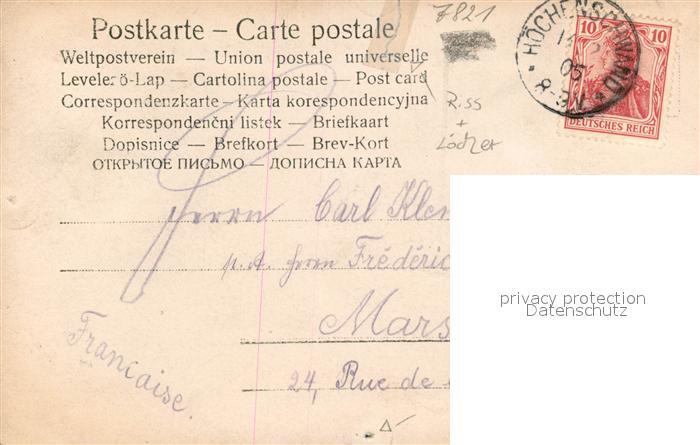 Postkarte – Carte postale
Weltpostverein — Union postale universelle
Levelező-Lap — Cartolina postale — Post card
Correspondenzkarte - Karta korespondencyjna
Korrespondenční listek — Briefkaart
Dopisnice — Brefkort — Brev-Kort
ОТКРЫТОЕ ПИСЬМО — ДОПИСНА КАРТА
7821
HÖCHENSCHWAND
05
8-9N
10 10
DEUTSCHES REICH
Riss
+
Löcher
Herrn Carl Klem
p. A. Herrn Frédéric
Mars
24, Rue de
Française.
privacy protection
Datenschutz